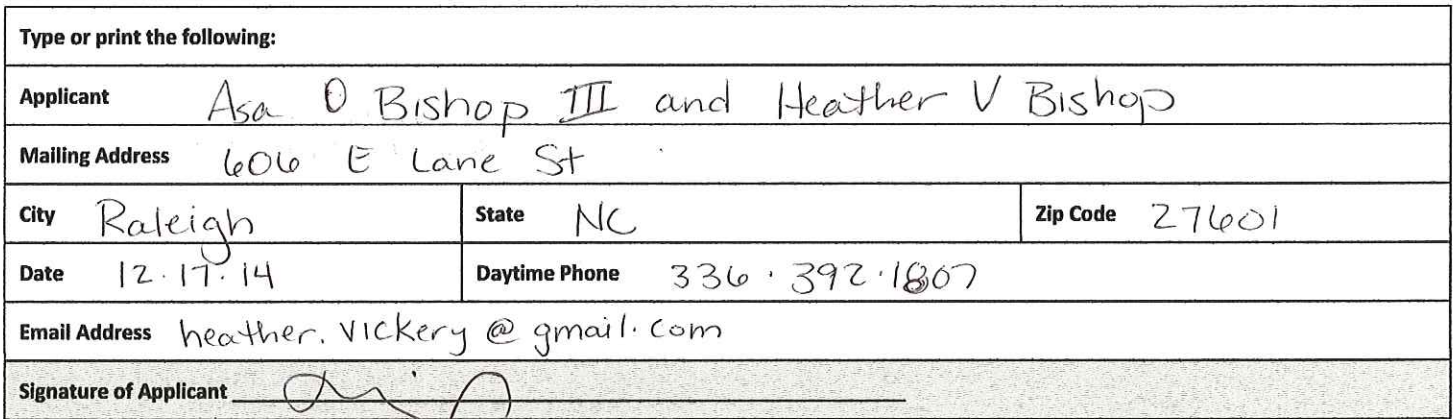 Type or print the following:
Applicant Asa O Bishop III and Heather V Bishop
Mailing Address 606 E Lane St
City Raleigh State NC Zip Code 27601
Date 12.17.14 Daytime Phone 336.392.1807
Email Address heather.vickery@gmail.com
Signature of Applicant